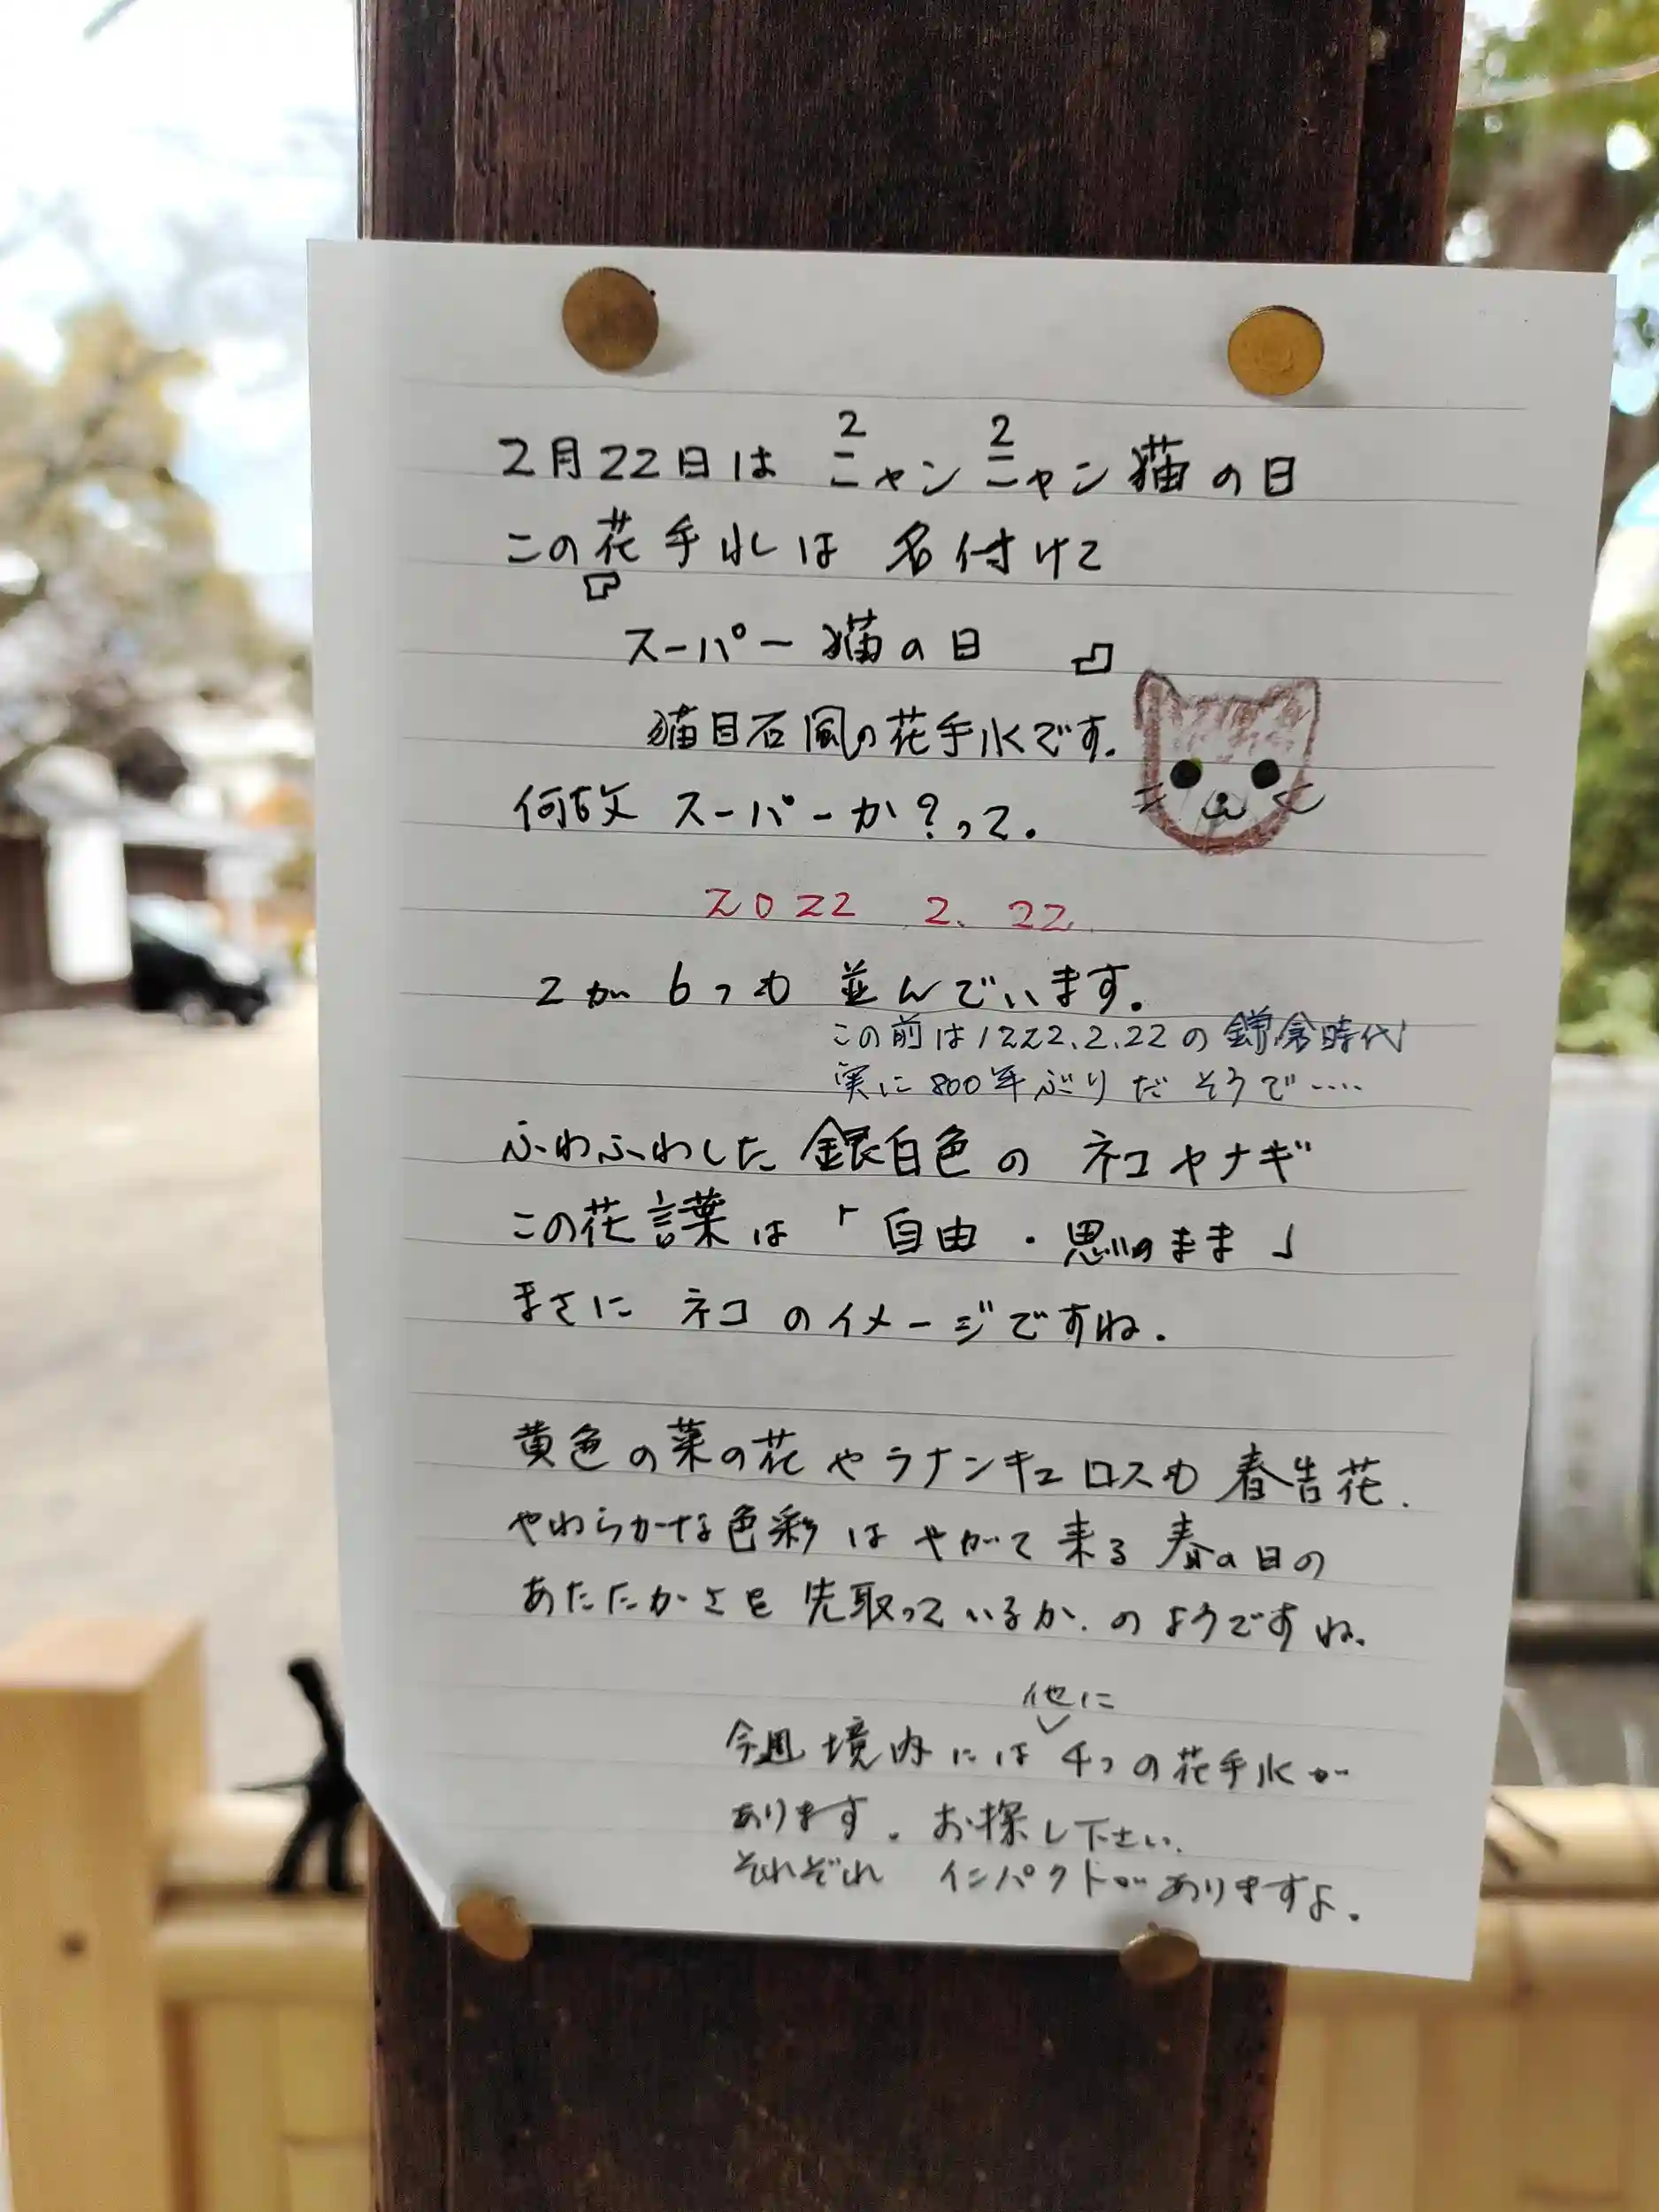 2月22日は ニャン ニャン 猫の日
2 2
この花手水は 名付けて
『スーパー猫の日』
猫目石風の花手水です.
何故 スーパーか?って.
2022 2. 22.
2が 6つも 並んでいます。
この前は1222.2.22の鎌倉時代
実に800年ぶりだそうで‥‥
ふわふわした銀白色の ネコヤナギ
この花言葉は「自由・思いのまま」
まさに ネコのイメージですね.
黄色の菜の花やラナンキュロスも 春告花.
やわらかな色彩は やがて来る春の日の
あたたかさを先取っているか.のようですね.
他に
今週 境内には 4つの花手水が
あります. お探し下さい.
それぞれ インパクトがありますよ.